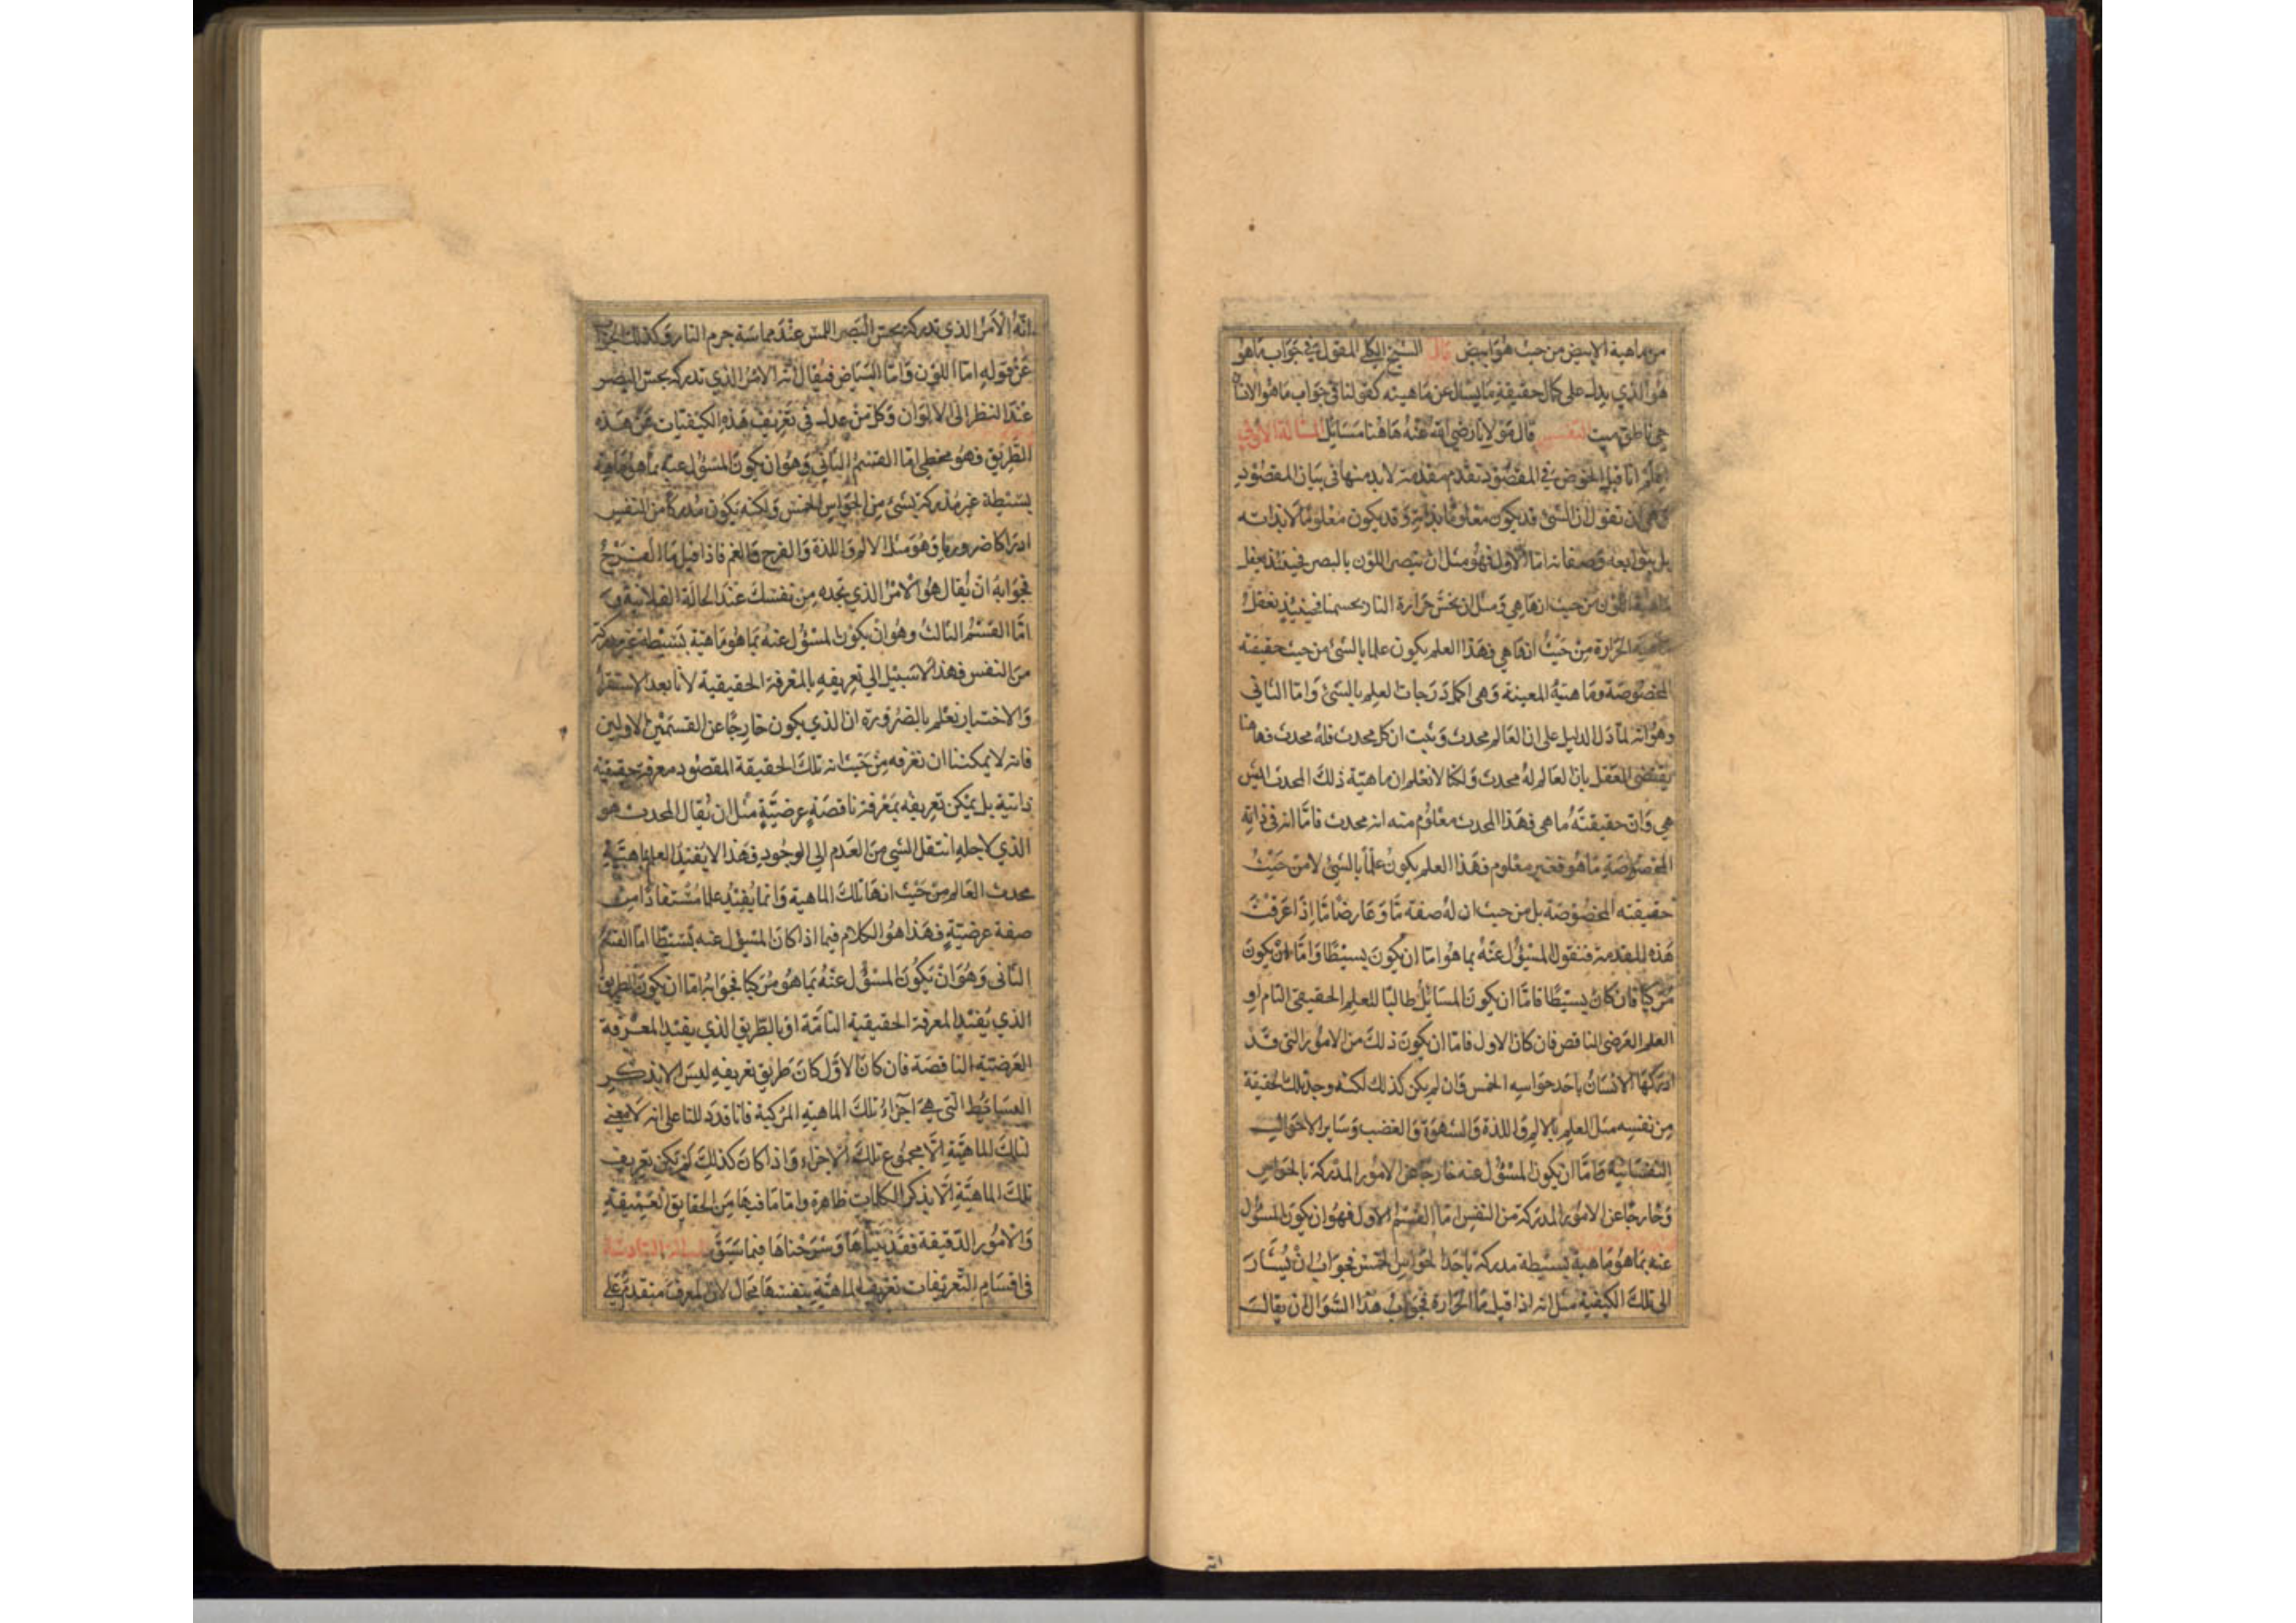 من ماهية الابيض من حيث هو ابيض قال الشيخ الكلي المقول في جواب ماهو
هو الذي يدل على كمال حقيقة ما يسال عن ماهيته كقولنا في جواب ما هو الانسان
حي ناطق ميت التفسير قال مولانا رضي الله عنه هاهنا مسايل المسالة الاولى
اعلم انا قبل الخوض في المقصود نقدم مقدمة لابد منها في بيان المقصود
وهي ان نقول ان الشئ قد يكون معلوما بذاته وقد يكون معلوما لا بذاته
بل بتوابعه وصفاته اما الاول فهو مثل ان نبصر اللون بالبصر فحينئذ نعقل
ماهية اللون من حيث انها هي ومثل ان نحس حرارة النار بحسنا فحينئذ نعقل
ماهية الحرارة من حيث انها هي فهذا العلم يكون علما بالشئ من حيث حقيقته
المخصوصة وماهيته المعينة وهي اكمل درجات العلم بالشئ واما الثاني
وهو انه لما دل الدليل على ان العالم محدث وثبت ان كل محدث فله محدث فهاهنا
يقتضي العقل بان العالم له محدث ولكنا لا نعلم ان ماهية ذلك المحدث ايش
هي وان حقيقته ما هي فهذا المحدث معلوم منه انه محدث فاما انه في ذاته
المخصوصة ما هو فغير معلوم فهذا العلم يكون علما بالشئ لا من حيث
حقيقته المخصوصة بل من حيث ان له صفة ما وعارضا ما اذا عرفت
هذه المقدمة فنقول المسؤل عنه بما هو اما ان يكون بسيطا واما ان يكون
مركبا فان كان بسيطا فاما ان يكون السايل طالبا للعلم الحقيقي التام او
العلم العرضي الناقص فان كان الاول فاما ان يكون ذلك من الامور التي قد
ادركها الانسان باحد حواسه الخمس وان لم يكن كذلك لكنه وجد تلك الحقيقة
من نفسه مثل العلم بالالم واللذة والشهوة والغضب وساير الاحوال
النفسانية واما ان يكون المسؤل عنه خارجا عن الامور المدركة بالحواس
وخارجا عن الامور المدركة من النفس اما القسم الاول فهو ان يكون المسؤل
عنه بما هو ماهية بسيطة مدركة باحدا الحواس الخمس فجوابه ان يشار
الى تلك الكيفية مثل انه اذا قيل ما الحرارة فجواب هذا السوال ان يقال
انه
انه الامر الذي تدركه بحس البصر اللمس عند مماسة جرم النار وكذلك الجواب
عن قوله اما اللون واما البياض فيقال انه الامر الذي تدركه بحس البصر
عند النظر الى الالوان وكل من عدل في تعريف هذه الكيفيات عن هذه
الطريق فهو مخطي اما القسم الثاني وهو ان يكون المسؤل عنه بما هو ماهية
بسيطة غير مدركة بشئ من الحواس الخمس ولكنه يكون مدركا من النفس
ادراكا ضروريا وهو مثل الالم واللذة والفرح والغم فاذا قيل ما الفرح
فجوابه ان يقال هو الامر الذي تجده من نفسك عند الحالة الفلانية و
اما القسم الثالث وهو ان يكون المسؤل عنه بما هو ماهية بسيطة غير مدركة
من النفس فهذا لا سبيل الى تعريفه بالمعرفة الحقيقية لانا بعد الاستقرا
والاختبار نعلم بالضرورة ان الذي يكون خارجا عن القسمين الاولين
فانه لا يمكننا ان نعرفه من حيث انه تلك الحقيقة المقصود معرفة حقيقية
ذاتية بل يمكن تعريفه بمعرفة ناقصة عرضية مثل ان يقال المحدث هو
الذي لاجله انتقل الشي من العدم الى الوجود فهذا لا يفيد العلم بماهية
محدث العالم من حيث انها تلك الماهية وانما يفيد علما مستفادا من
صفة عرضية فهذا هو الكلام فيما اذا كان المسؤل عنه بسيطا اما القسم
الثاني وهو ان يكون المسؤل عنه بما هو مركبا فجوابه اما ان يكون بالطريق
الذي يفيد المعرفة الحقيقية التامة او بالطريق الذي يفيد المعرفة
العرضية الناقصة فان كان الاول كان طريق تعريفه ليس الا بذكر
البسايط التي هي اجزاء تلك الماهية المركبة فانا قد دللنا على انه لا معنى
لتلك الماهية الا مجموع تلك الاجزاء واذا كان كذلك لم يكن تعريف
تلك الماهية الا بذكر الكلمات ظاهرة واما ما فيها من الحقايق العميقة
والامور الدقيقة فقد بيناها وشرحناها فيما سبق المسالة الثانية
في اقسام التعريفات تعريف الماهية بنفسها محال لان المعرف متقدم على